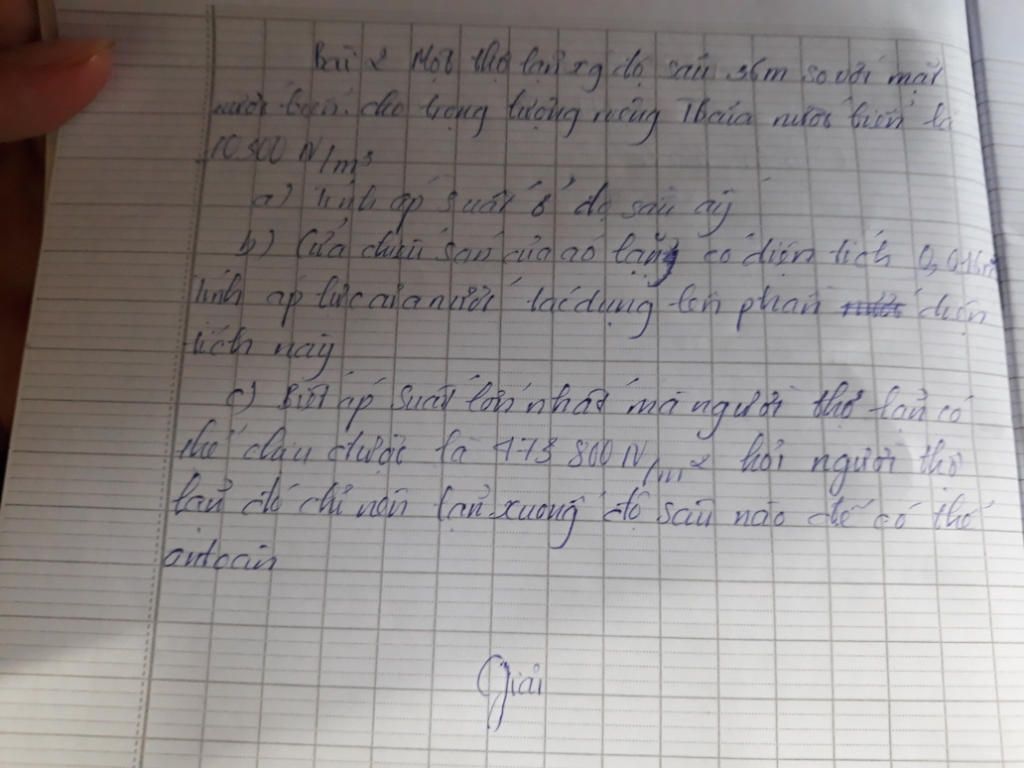 Bài 2 Một thợ lặn xg độ sâu 36m so với mặt
nước biển. cho trọng lượng riêng TB của nước biển là
10300 N/m³
a) tính áp suất ở độ sâu ấy
b) Cửa chiếu sáng của áo lặng có diện tích 0,
tính áp lực của nước tác dụng lên phần diện
tích này
c) Biết áp suất lớn nhất mà người thợ lặn có
thể chịu được là 473 800 N/m² hỏi người thợ
lặn đó chỉ nên lặn xuống độ sâu nào để có thể
an toàn
Giải